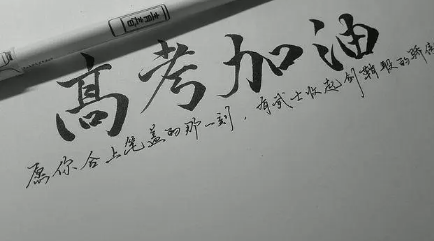 高考加油
愿你合上笔盖的那一刻，有武士收起剑鞘般的骄